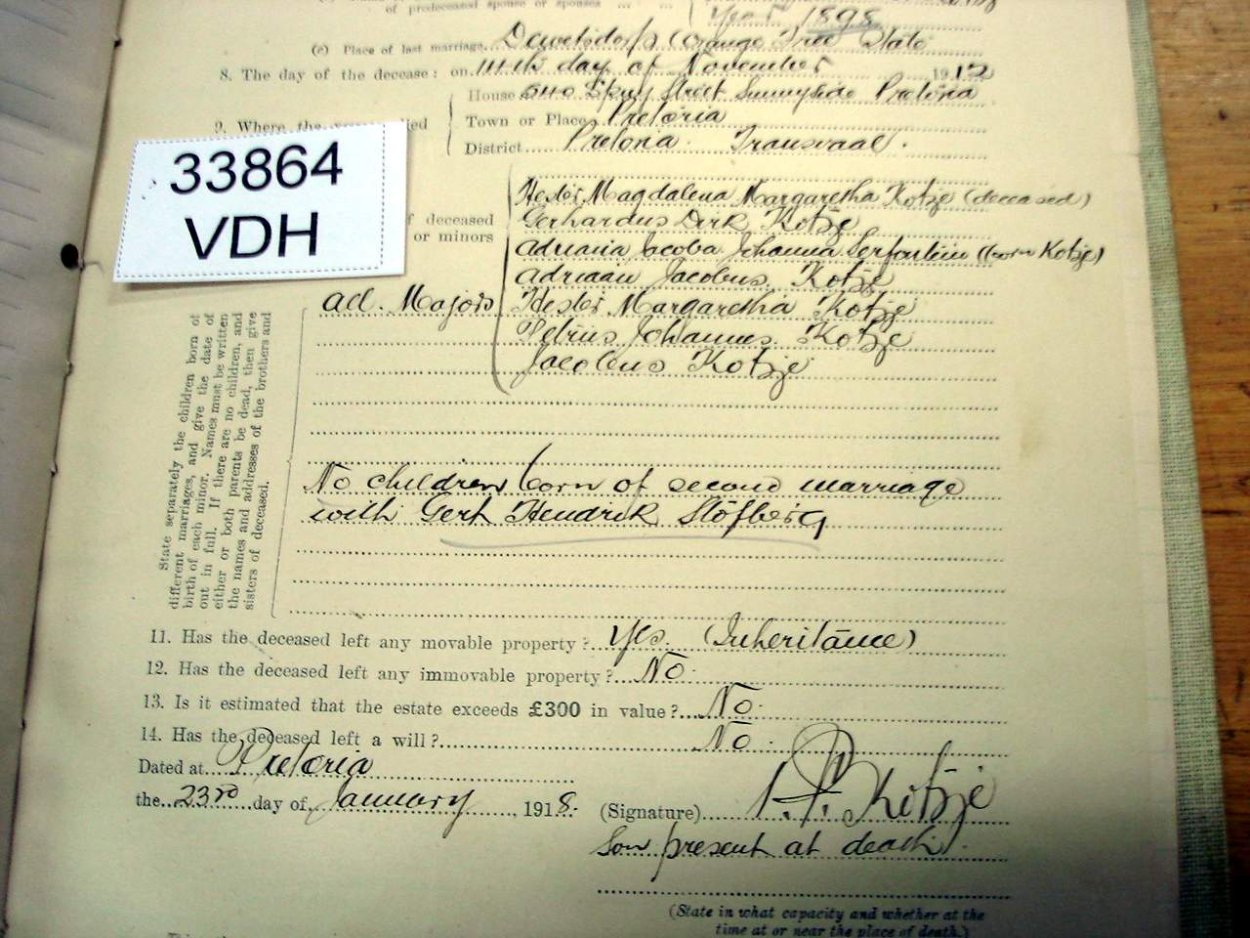 of predeceased spouse or spouses
1898
(c) Place of last marriage, Dewetsdorp (Orange Free State
8. The day of the decease: on 11th day of November 1912
House Street Sunnyside Pretoria
9. Where the
Town or Place Pretoria
District Pretoria Transvaal.
33864
VDH
of deceased
or minors
Hester Magdalena Margaretha Kotzé (deceased)
Gerhardus Dirk Kotzé
Adriana Jacoba Johanna Serfontein (born Kotzé)
Adriaan Jacobus Kotzé
all Majors Hester Margaretha Kotzé
Petrus Johannes Kotzé
Jacobus Kotzé
State separately the children born of
different marriages, and give the date of
birth of each minor. Names must be written
out in full. If there are no children, and
either or both parents be dead, then give
the names and addresses of the brothers and
sisters of deceased.
No children born of second marriage
with Gert Hendrik Stofberg
11. Has the deceased left any movable property? Yes. (Inheritance)
12. Has the deceased left any immovable property? No.
13. Is it estimated that the estate exceeds £300 in value? No.
14. Has the deceased left a will? No.
Dated at Pretoria
the 23rd day of January, 1918.
(Signature) Kotzé
Son present at death.
(State in what capacity and whether at the
time at or near the place of death.)